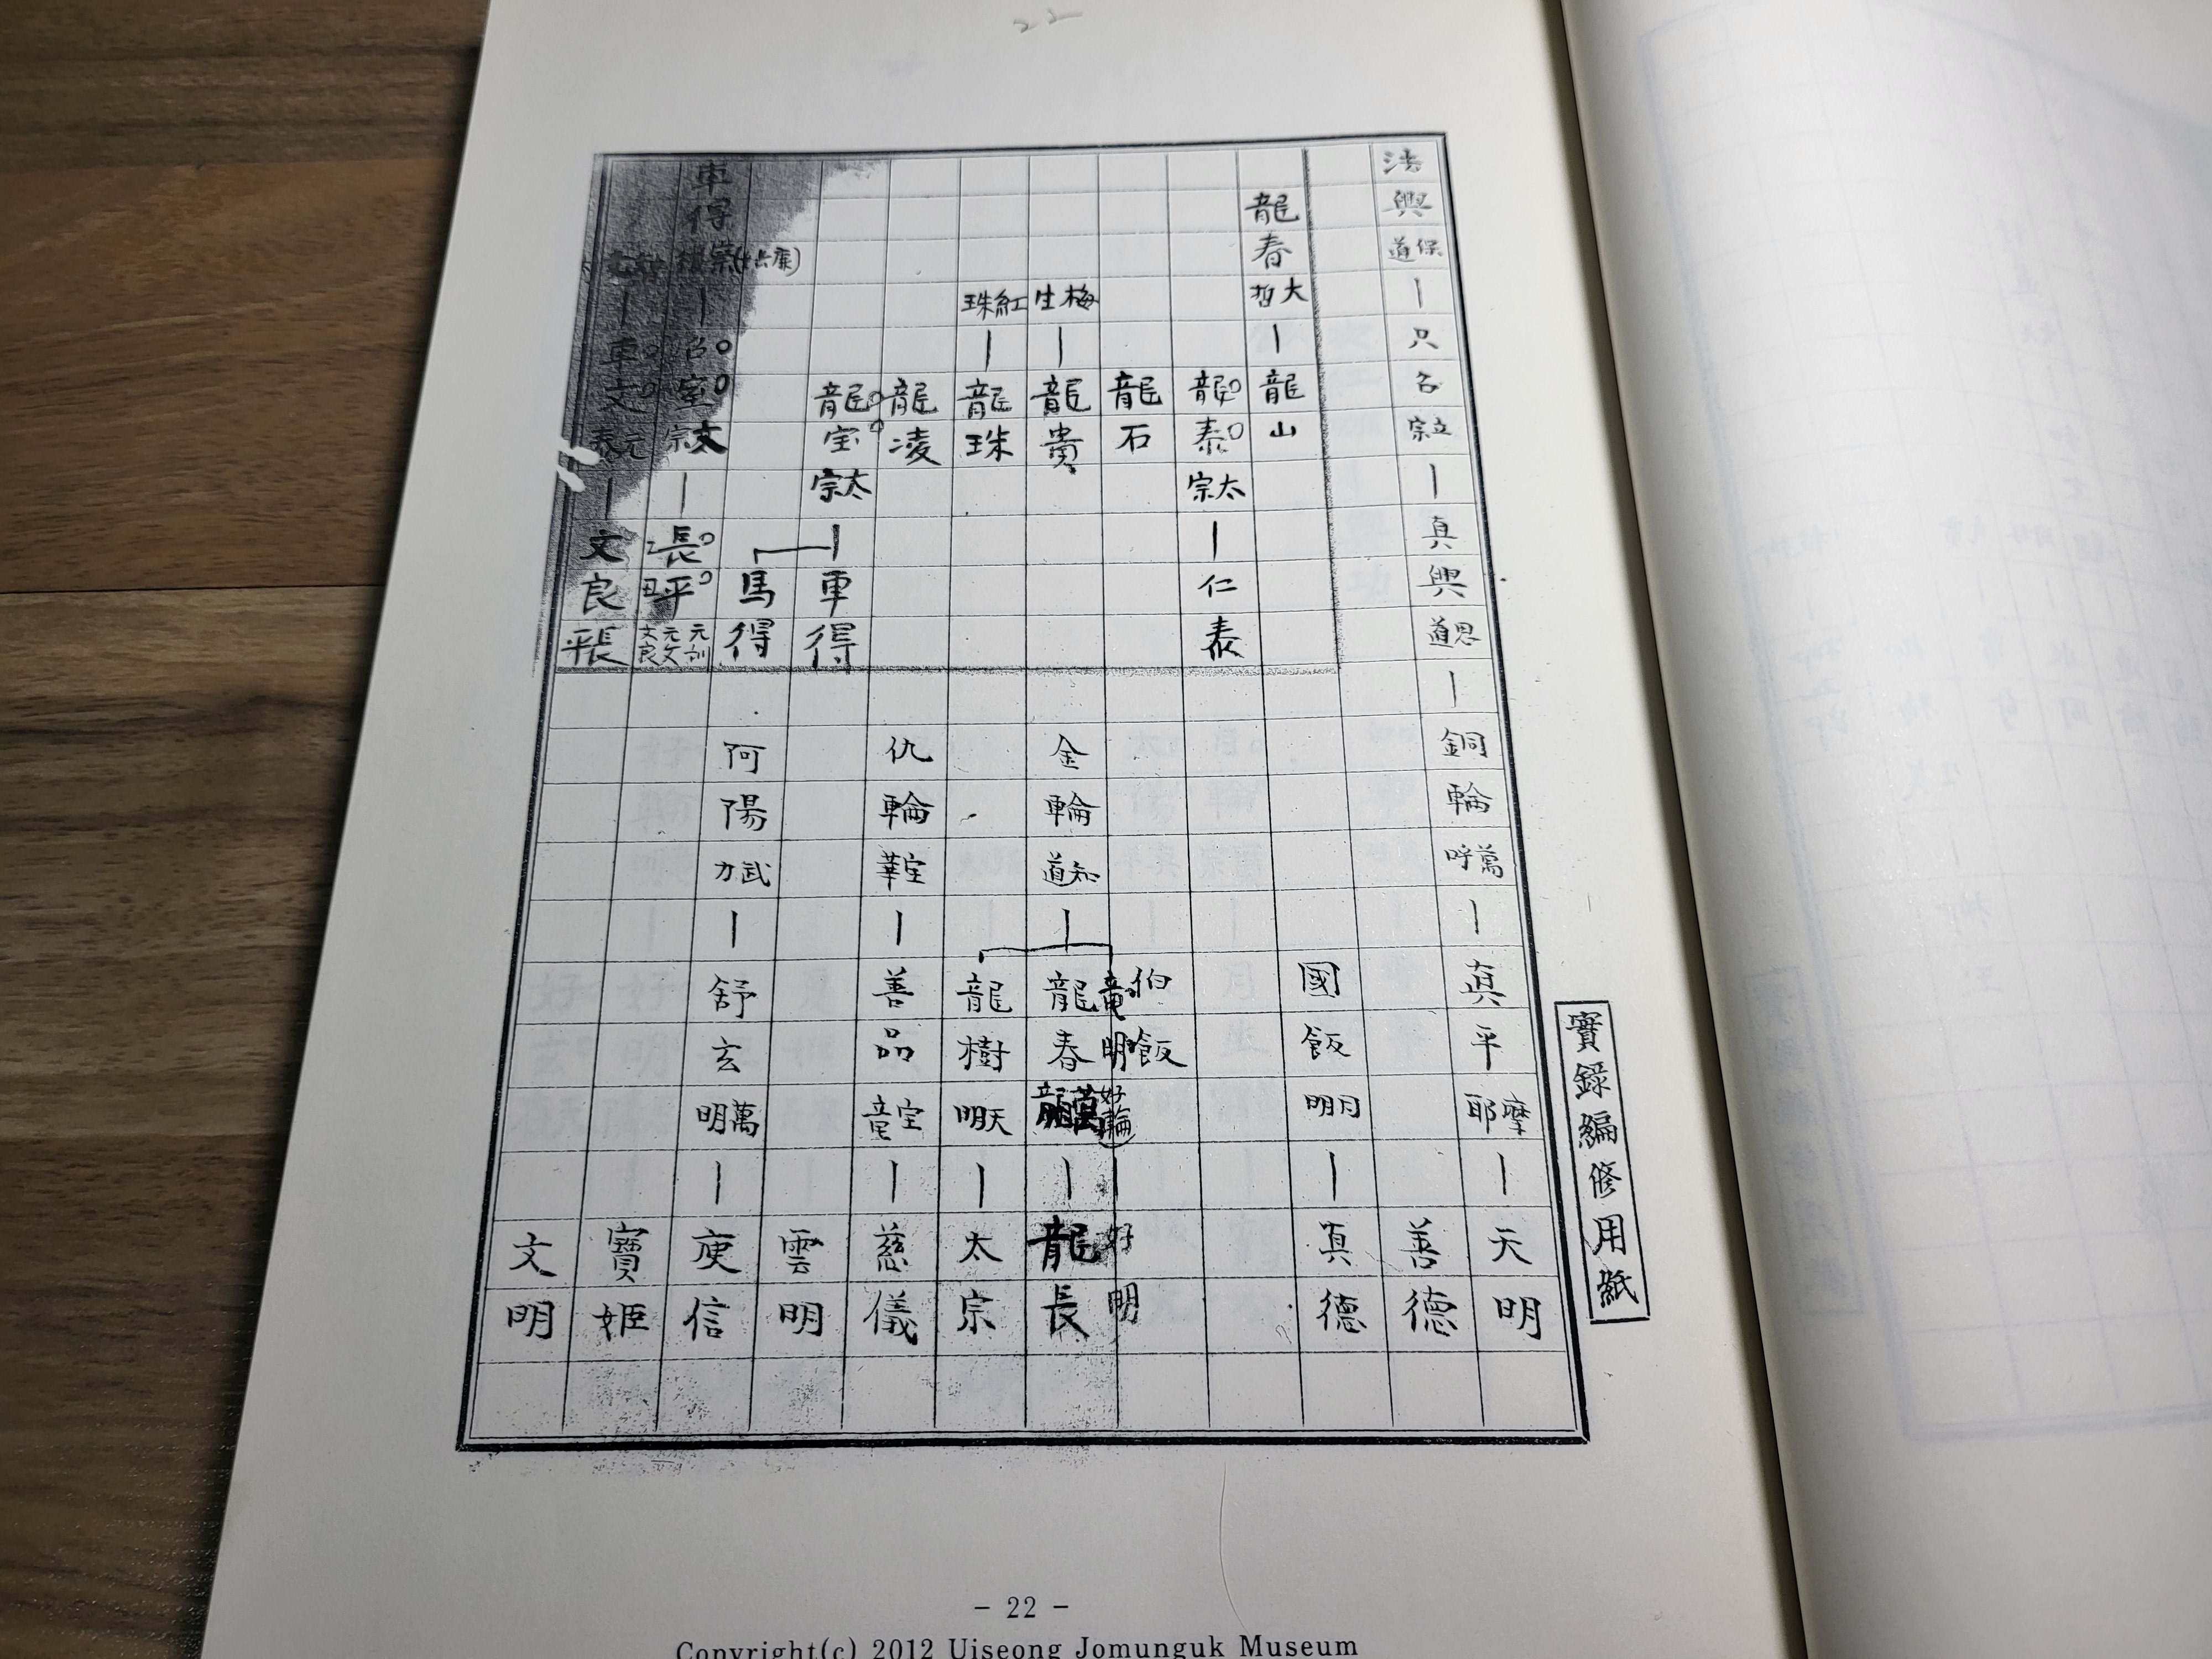 22
法興保道
只召立宗
真興思道
銅輪萬呼
真平摩耶
天明
善德
國飯月明
真德
龍春大哲
龍山
龍泰太宗
仁泰
龍石
梅生
龍貴
紅珠
龍珠
龍凌
龍宝太宗
車得
馬得
車得
長平
元訓
元文
文良
文良
長平
伯飯
好明
金輪知道
龍春
竜明
龍長
龍樹天明
太宗
仇輪
善品宝竜
慈儀
雲明
阿陽武力
舒玄萬明
庾信
寶姬
文明
實錄編修用紙
- 22 -
Copyright(c) 2012 Uiseong Jomunguk Museum